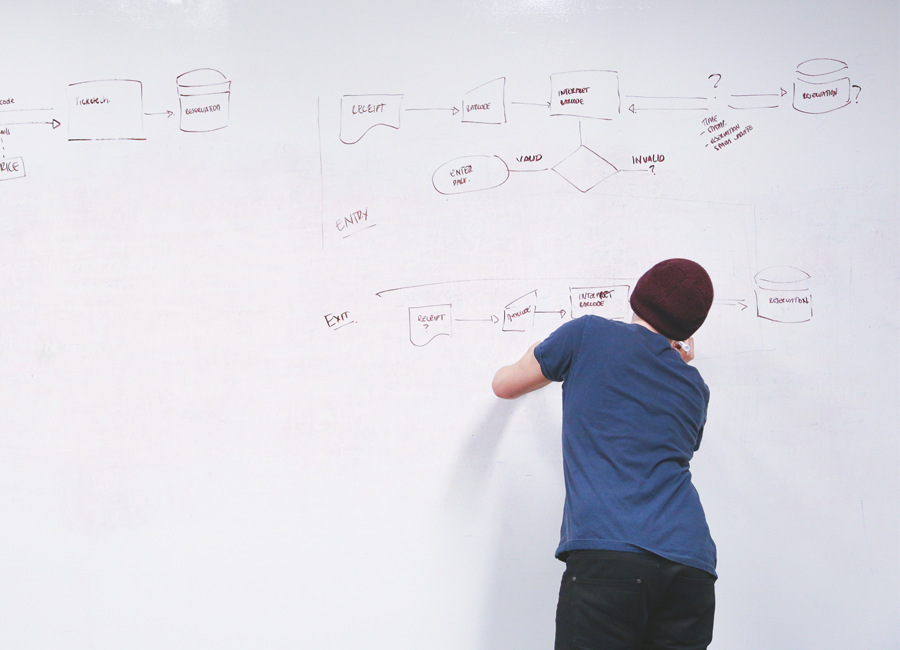 CODE
TICKETECH.
RESERVATION
RICE
RECEIPT
BARCODE
INTERPRET
BARCODE
?
RESERVATION
?
TIME
- RESERVATION
STATUS UPDATE
ENTER
PARK.
VALID
INVALID
?
ENTRY
EXIT.
RECEIPT
?
BARCODE
INTERPRET
BARCODE
RESERVATION